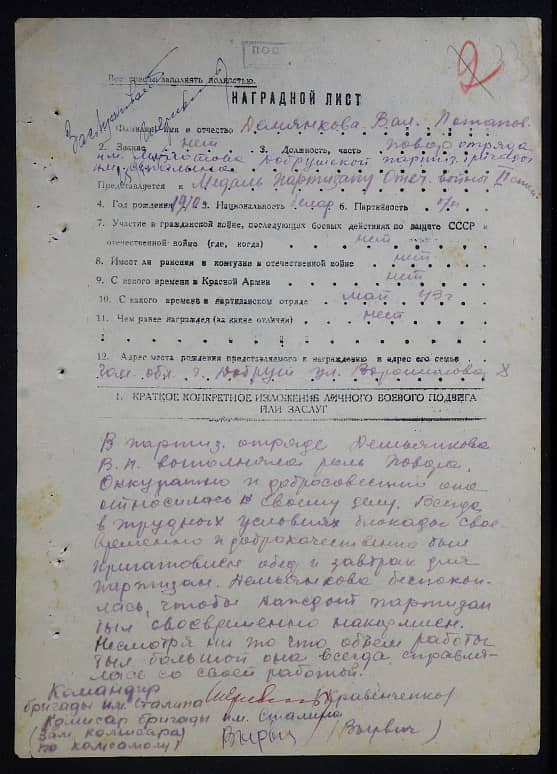 ПОС
2
Все графы заполнять полностью.
НАГРАДНОЙ ЛИСТ
Фамилия, имя и отчество Демянкова Вал. Потапов.
2. Звание нет 3. Должность, часть Повар отряда
им. Добрушской партиз. бригады
им. Сталина
Представляется к Медаль Партизану Отеч. войны II степ
4. Год рождения 1910 5. Национальность 6. Партийность б/п
7. Участие в гражданской войне, последующих боевых действиях по защите СССР и
отечественной войне (где, когда) нет
8. Имеет ли ранения и контузии в отечественной войне нет
9. С какого времени в Красной Армии нет
10. С какого времени в партизанском отряде май 43 г
11. Чем ранее награжден (за какие отличия) нет
12. Адрес места рождения представляемого к награждению и адрес его семьи
Гом. обл. г. Добруш ул. Ворошилова, 8
1. КРАТКОЕ КОНКРЕТНОЕ ИЗЛОЖЕНИЕ ЛИЧНОГО БОЕВОГО ПОДВИГА
ИЛИ ЗАСЛУГ
В партиз. отряде Демьянкова
В. П. выполняла роль повара.
Оккуратно и добросовестно она
относилась к своему делу. Всегда
в трудных условиях блокады свое
временно и доброкачественно был
приготовлен обед и завтрак для
партизан. Демьянкова беспокои-
лась, чтобы каждый партизан
был своевременно накормлен.
Несмотря ни то что объем работы
был большой она всегда справля-
лась со своей работой.
Командир
бригады им. Сталина (Кравченко)
Комисар бригады им. Сталина
(Зам. комисара (Вырвич)
по комсомолу)